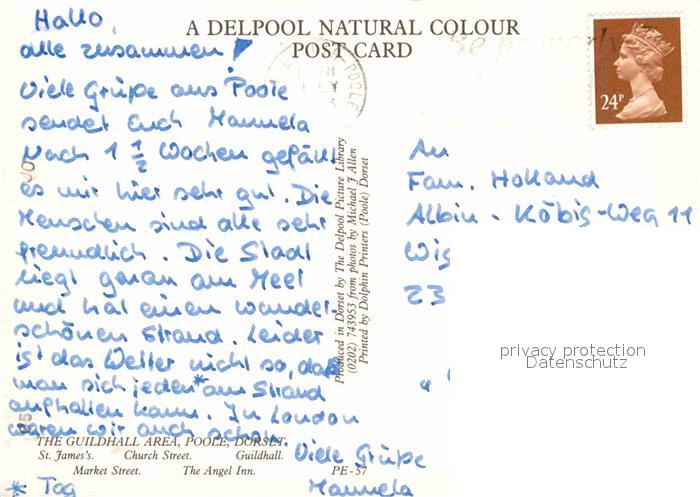 A DELPOOL NATURAL COLOUR
POST CARD
Hallo,
alle zusammen!
Viele Grüße aus Poole
sendet Euch Manuela
Nach 1 1/2 Wochen gefällt
es mir hier sehr gut. Die
Menschen sind alle sehr
freundlich. Die Stadt
liegt genau am Meer
und hat einen wunder-
schönen Strand. Leider
ist das Wetter nicht so, daß
man sich jeden* am Strand
aufhalten kann. In London
waren wir auch schon.
Viele Grüße
Manuela
* Tag
THE GUILDHALL AREA, POOLE, DORSET.
St. James's. Church Street. Guildhall.
Market Street. The Angel Inn. PE-57
Produced in Dorset by The Delpool Picture Library
(0202) 743953 from photos by Michael J Allen
Printed by Dolphin Printers (Poole) Dorset
POOLE
24P
An
Fam. Holland
Albin-Köbis-Weg 11
Wis
23
privacy protection
Datenschutz